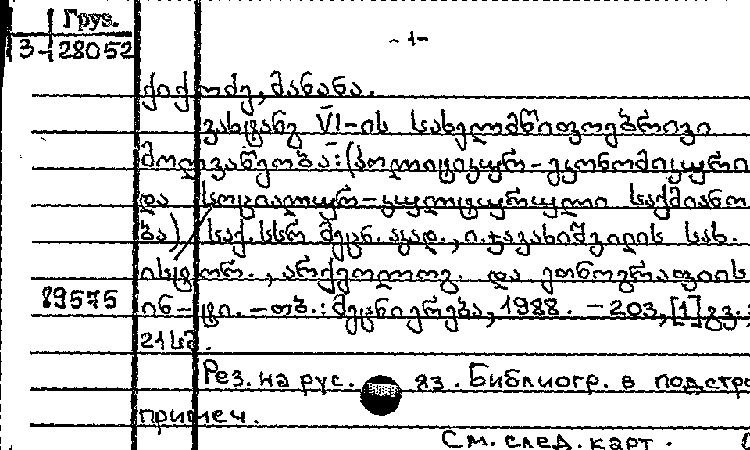 Груз.
3-28052
-1-
ქიქოძე, მანანა.
ვახტანგ VI-ის სახელმწიფოებრივი
მოღვაწეობა: (პოლიტიკურ-ეკონომიკური
და სოციალურ-კულტურული საქმიანო
ბა) / საქ. სსრ მეცნ. აკად., ი. ჯავახიშვილის სახ.
ისტორ., არქეოლოგ. და ეთნოგრაფიის
89575 ინ-ტი. - თბ.: მეცნიერება, 1988. - 203, [1] გვ.;
21 სმ.
Рез. на рус. яз. Библиогр. в подстр
примеч.
См. след. карт.